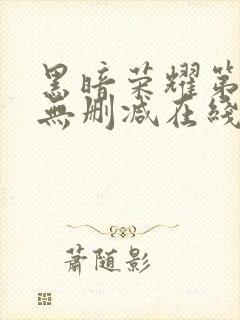 黑暗荣耀第
無删减在綫
蕭随影